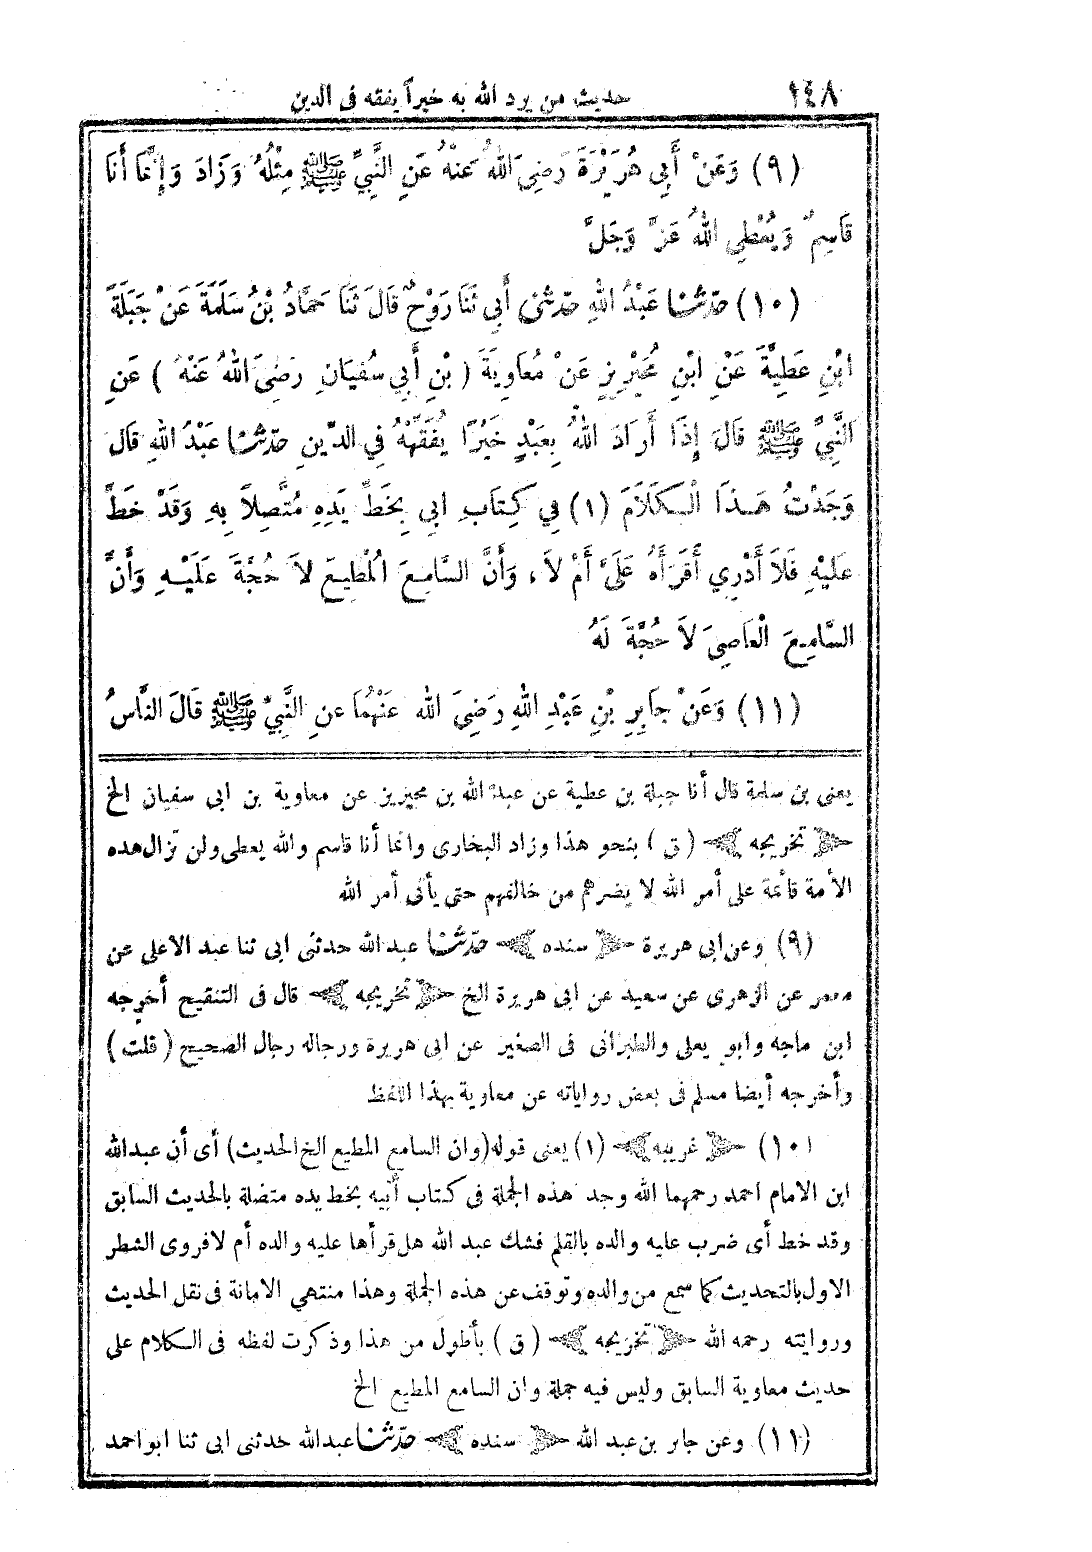 ١٤٨ حديث من يرد الله به خيراً يفقه فى الدين
(٩) وَعَنْ أَبِي هُرَيْرَةَ رَضِيَ اللهُ عَنْهُ عَنِ النَّبِيِّ ﷺ مِثْلُهُ وَزَادَ وَإِنَّمَا أَنَا
قَاسِمٌ وَيُعْطِي اللهُ عَزَّ وَجَلَّ
(١٠) حَدَّثَنَا عَبْدُ اللهِ حَدَّثَنِي أَبِي ثَنَا رَوْحٌ قَالَ ثَنَا حَمَّادُ بْنُ سَلَمَةَ عَنْ جَبَلَةَ
ابْنِ عَطِيَّةَ عَنْ ابْنِ مُحَيْرِيزٍ عَنْ مُعَاوِيَةَ (بْنِ أَبِي سُفْيَانِ رَضِيَ اللهُ عَنْهُ) عَنِ
النَّبِيِّ ﷺ قَالَ إِذَا أَرَادَ اللهُ بِعَبْدٍ خَيْرًا يُفَقِّهْهُ فِي الدِّينِ حَدَّثَنَا عَبْدُ اللهِ قَالَ
وَجَدْتُ هَـذَا الْـكَلَامَ (١) فِي كِتَابِ ابِي بِخَطِّ يَدِهِ مُتَّصِلاً بِهِ وَقَدْ خَطَّ
عَلَيْهِ فَلَا أَدْرِي أَقَرَأَهُ عَلَيَّ أَمْ لاَ، وَأَنَّ السَّامِعَ الْمُطِيعَ لاَ حُجَّةَ عَلَيْـهِ وَأَنَّ
السَّامِعَ الْعَاصِيَ لاَ حُجَّةَ لَهُ
(١١) وَعَنْ جَابِرِ بْنِ عَبْدِ اللهِ رَضِيَ الله عَنْهُمَا عنِ النَّبِيِّ ﷺ قَالَ النَّاسُ
يعنى بن سلمة قال أنا جبلة بن عطية عن عبد الله بن محيريز عن معاوية بن ابى سفيان الخ
﴿ تخريجه ﴾ (ق) بنحو هذا وزاد البخارى وانما أنا قاسم والله يعطى ولن تزال هذه
الأمة قائمة على أمر الله لا يضرهم من خالفهم حتى يأتى أمر الله
(٩) وعن ابى هريرة ﴿ سنده ﴾ حدّثنا عبد الله حدثنى ابى ثنا عبد الاعلى عن
معمر عن الزهرى عن سعيد عن ابى هريرة الخ ﴿ تخريجه ﴾ قال فى التنقيح أخرجه
ابن ماجه وابو يعلى والطبرانى فى الصغير عن ابى هريرة ورجاله رجال الصحيح (قلت)
وأخرجه أيضا مسلم فى بعض رواياته عن معاوية بهذا اللفظ
(١٠) ﴿ غريبه ﴾ (١) يعنى قوله (وان السامع المطيع الخ الحديث) أى أن عبد الله
ابن الامام احمد رحمهما الله وجد هذه الجملة فى كتاب أبيه بخط يده متصلة بالحديث السابق
وقد خط أى ضرب عليه والده بالقلم فشك عبد الله هل قرأها عليه والده أم لا فروى الشطر
الاول بالتحديث كما سمع من والده وتوقف عن هذه الجملة وهذا منتهى الامانة فى نقل الحديث
وروايته رحمه الله ﴿ تخريجه ﴾ (ق) بأطول من هذا وذكرت لفظه فى الـكلام على
حديث معاوية السابق وليس فيه جملة وان السامع المطيع الخ
(١١) وعن جابر بن عبد الله ﴿ سنده ﴾ حدّثنا عبد الله حدثنى ابى ثنا ابو احمد